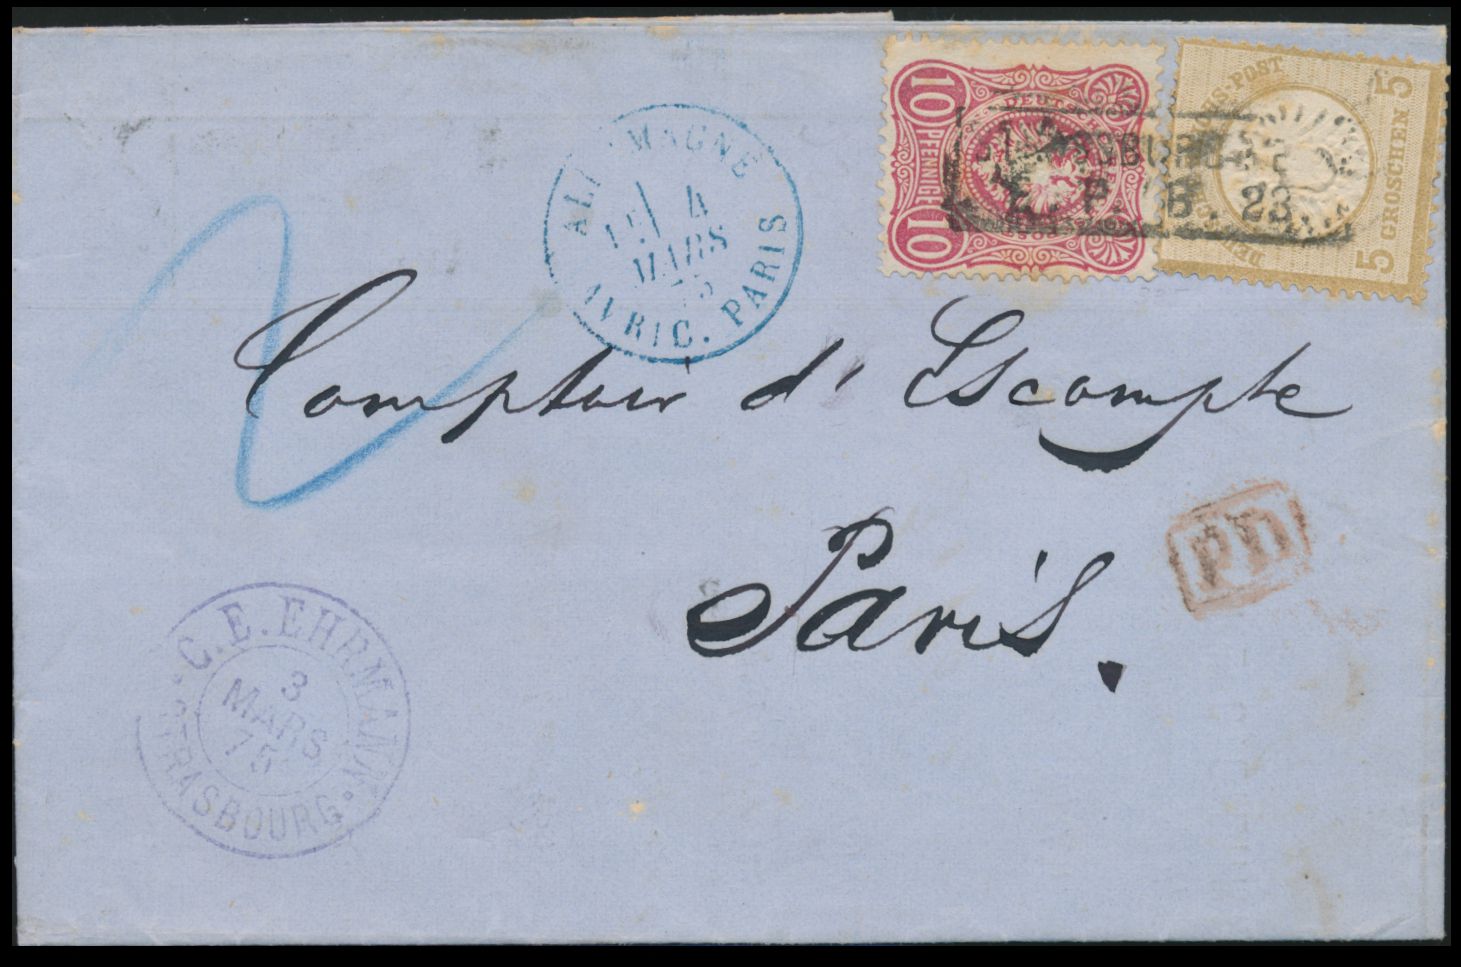 10 PFENNIGE 10
DEUTSCHE
5 GROSCHEN 5
S-POST
P. B. 23
ALLEMAGNE
4
MARS
75
AVRIC. PARIS
Comptoir d'Escompte
PD
Paris.
C. E. EHRMANN
3
MARS
75
STRASBOURG
2